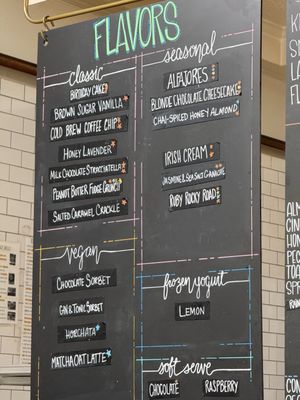 FLAVORS
classic
BIRTHDAY CAKE
BROWN SUGAR VANILLA
COLD BREW COFFEE CHIP
HONEY LAVENDER
MILK CHOCOLATE STRACCIATELLA
PEANUT BUTTER FUDGE CRUNCH
SALTED CARAMEL CRACKLE
vegan
CHOCOLATE SORBET
GIN & TONIC SORBET
HORCHATA
MATCHA OAT LATTE
seasonal
ALFAJORES
BLONDIE CHOCOLATE CHEESECAKE
CHAI-SPICED HONEY ALMOND
IRISH CREAM
JASMINE & SEA SALT GANACHE
RUBY ROCKY ROAD
frozen yogurt
LEMON
soft serve
CHOCOLATE
RASPBERRY